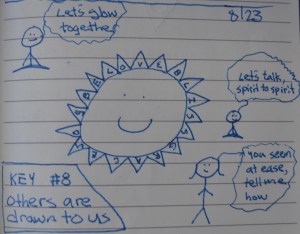 Let's glow
together
8/23
LOVE
Let's talk,
spirit to spirit
You seem
at ease,
tell me
how
KEY #8
others are
drawn to us